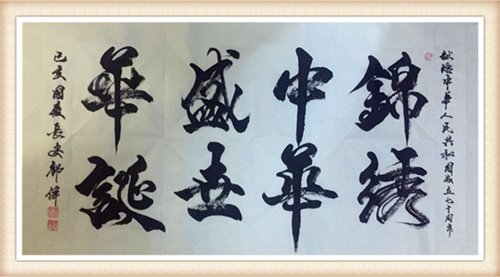 献给中华人民共和国成立七十周年
錦绣
中華
盛世
華誕
己亥国庆長安郭